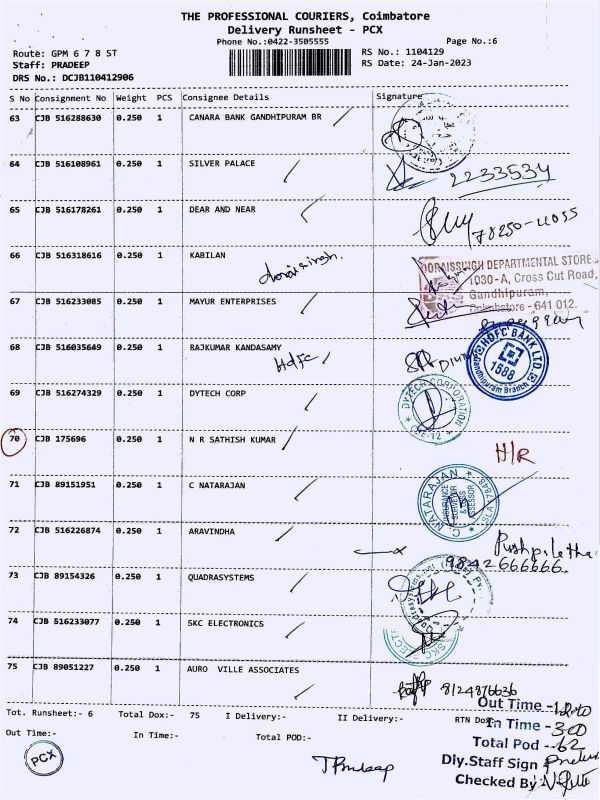 THE PROFESSIONAL COURIERS, Coimbatore
Delivery Runsheet - PCX
Phone No.:0422-3505555 Page No.:6
Route: GPM 6 7 8 ST RS No.: 1104129
Staff: PRADEEP RS Date: 24-Jan-2023
DRS No.: DCJB110412906
S No Consignment No Weight PCS Consignee Details Signature
63 CJB 516288630 0.250 1 CANARA BANK GANDHIPURAM BR
64 CJB 516108961 0.250 1 SILVER PALACE 2233534
65 CJB 516178261 0.250 1 DEAR AND NEAR 78250-4055
66 CJB 516318616 0.250 1 KABILAN
DORAISSINGH DEPARTMENTAL STORE
1030-A, Cross Cut Road,
Gandhipuram,
Coimbatore - 641 012.
67 CJB 516233085 0.250 1 MAYUR ENTERPRISES
68 CJB 516035649 0.250 1 RAJKUMAR KANDASAMY Hdfc
HDFC BANK LTD.
1688
Gandhipuram Branch
69 CJB 516274329 0.250 1 DYTECH CORP
DYTECH CORPORATION
CBE-12
70 CJB 175696 0.250 1 N R SATHISH KUMAR H/R
71 CJB 89151951 0.250 1 C NATARAJAN
C. NATARAJAN
INSURANCE
SURVEYOR
& LOSS
ASSESSOR
72 CJB 516226874 0.250 1 ARAVINDHA Pushpalatha
9842666666
73 CJB 89154326 0.250 1 QUADRASYSTEMS
74 CJB 516233077 0.250 1 SKC ELECTRONICS
75 CJB 89051227 0.250 1 AURO VILLE ASSOCIATES 8124876636
Tot. Runsheet:- 6 Total Dox:- 75 I Delivery:- II Delivery:- RTN Dox:
Out Time:- In Time:- Total POD:-
Out Time -
In Time - 300
Total Pod - 62
Dly.Staff Sign
Checked By
PCX
TPradeep